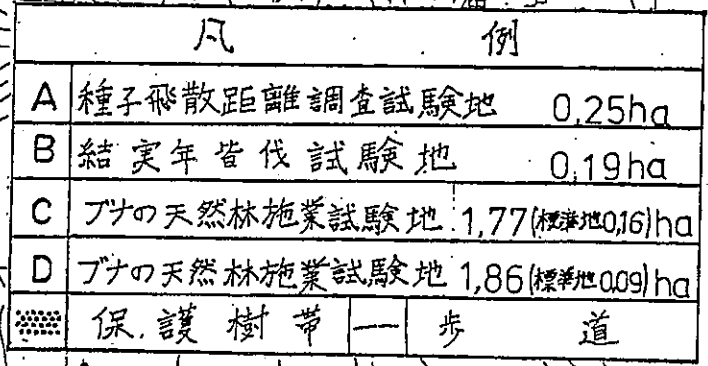 凡例
A 種子飛散距離調査試験地 0,25ha
B 結実年皆伐試験地 0,19ha
C ブナの天然林施業試験地 1,77(標準地0,16)ha
D ブナの天然林施業試験地 1,86(標準地0,09)ha
保護樹帯 歩道